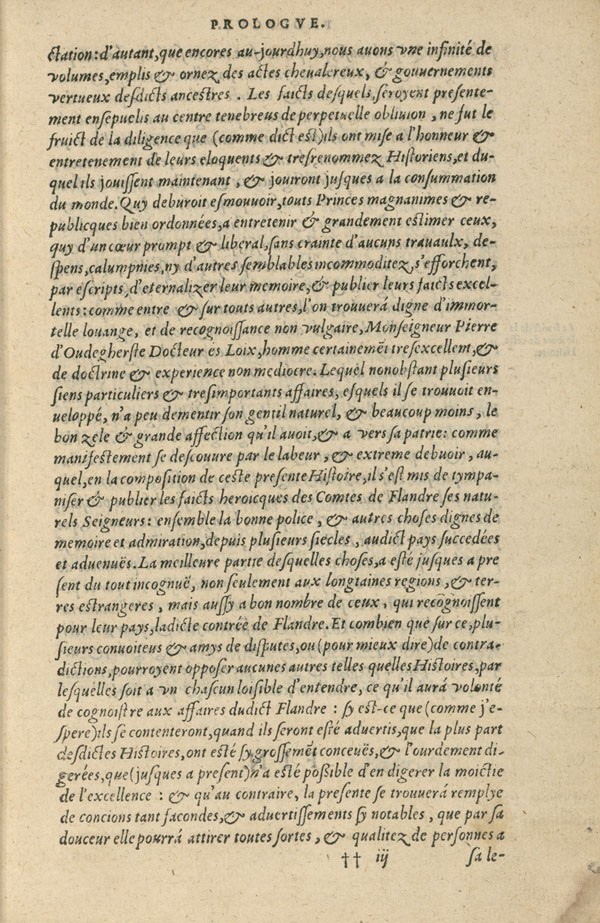 PROLOGVE.
ctation: d'autant, que encores au-jourdhuy, nous auons vne infinité de
volumes, emplis & ornez des actes cheualereux, & gouuernements
vertueux desdicts ancestres . Les faicts desquels, seroyent presente-
ment ensepuelis au centre tenebreus de perpetuelle obliuion , ne fut le
fruict de la diligence que (comme dict est) ils ont mise a l'honneur &
entretenement de leurs eloquents & tresrenommez Historiens, et du-
quel ils jouissent maintenant , & jouiront jusques a la consummation
du monde. Quy deburoit esmouuoir, touts Princes magnanimes & re-
publicques bien ordonnées, a entretenir & grandement estimer ceux,
quy d'un cœur prompt & liberal, sans crainte d'aucuns trauaulx, de-
spens, calumpnies, ny d'autres semblables incommoditez, s'efforchent,
par escripts, d'eternalizer leur memoire, & publier leurs faicts excel-
lents: comme entre & sur touts autres, l'on trouuerá digne d'immor-
telle louange, et de recognoissance non vulgaire, Monseigneur Pierre
d'Oudegherste Docteur es Loix, homme certainemēt tresexcellent, &
de doctrine & experience non mediocre. Lequel nonobstant plusieurs
siens particuliers & tresimportants affaires, esquels il se trouuoit en-
ueloppé, n'a peu dementir son gentil naturel, & beaucoup moins , le
bon zele & grande affection qu'il auoit, & a vers sa patrie: comme
manifestement se descouure par le labeur, & extreme debuoir, au-
quel, en la composition de ceste presente Histoire, il s'est mis de tympa-
niser & publier les faicts heroicques des Comtes de Flandre ses natu-
rels Seigneurs: ensemble la bonne police , & autres choses dignes de
memoire et admiration, depuis plusieurs siecles , audict pays succedées
et aduenuës. La meilleure partie desquelles choses, a esté jusques a pre
sent du tout incognuë, non seulement aux longtaines regions , & ter-
res estrangeres , mais aussy a bon nombre de ceux, qui recōgnoissent
pour leur pays, ladicte contrée de Flandre. Et combien que sur ce, plu-
sieurs conuoiteus & amys de disputes, ou (pour mieux dire) de contra-
dictions, pourroyent opposer aucunes autres telles quelles Histoires, par
lesquelles soit a vn chascun loisible d'entendre, ce qu'il aurá volonté
de cognoistre aux affaires dudict Flandre : sy est-ce que (comme j'e-
spere) ils se contenteront, quand ils seront esté aduertis, que la plus part
desdictes Histoires, ont esté sy grossemēt conceuës, & l'ourdement di-
gerées, que (jusques a present) n'a esté poßible d'en digerer la moictie
de l'excellence : & qu'au contraire, la presente se trouuerá remplye
de concions tant facondes, & aduertissements sy notables, que par sa
douceur elle pourrá attirer toutes sortes, & qualitez de personnes a
†† iij sa le-